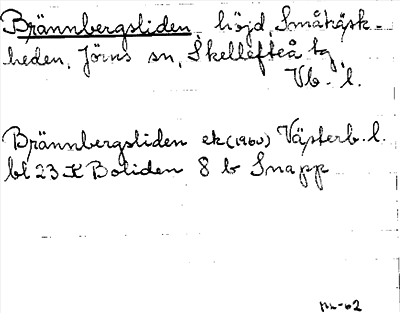 Brännbergsliden höjd, Småträsk-
heden, Jörns sn, Skellefteå tg
Vb. l.
Brännbergsliden ek (1960) Västerb. l.
bl 23 K Boliden 8 b Snapp
-62